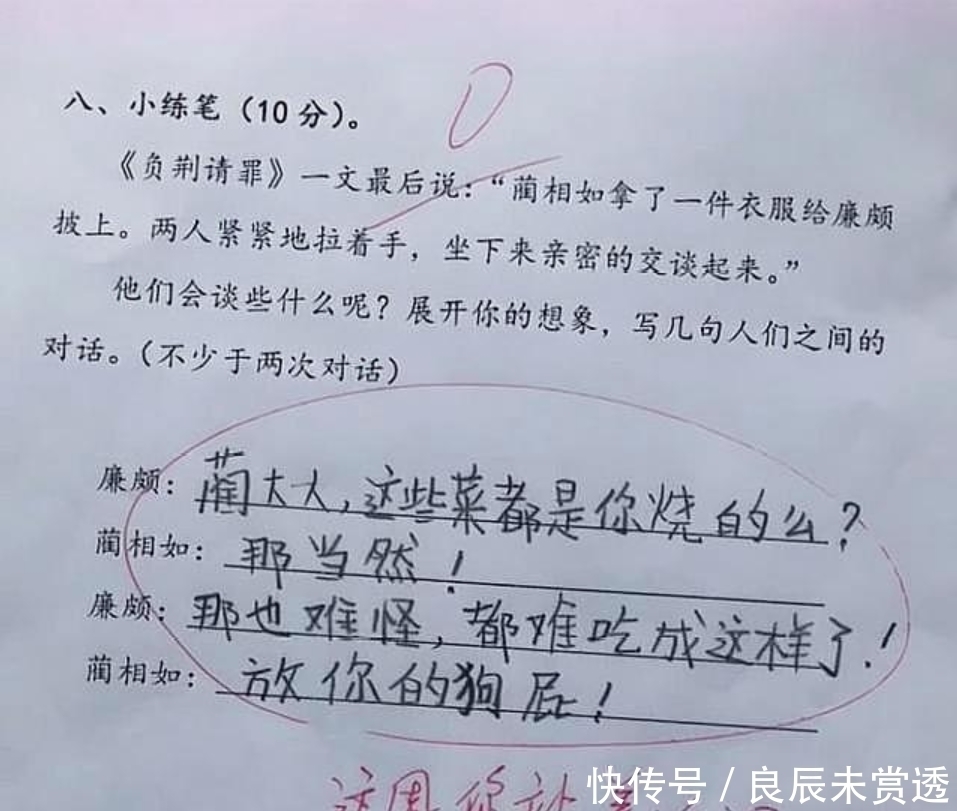 0
八、小练笔（10分）。
《负荆请罪》一文最后说：“蔺相如拿了一件衣服给廉颇
披上。两人紧紧地拉着手，坐下来亲密的交谈起来。”
他们会谈些什么呢？展开你的想象，写几句人们之间的
对话。（不少于两次对话）
廉颇：蔺大人，这些菜都是你烧的么？
蔺相如：那当然！
廉颇：那也难怪，都难吃成这样了！
蔺相如：放你的狗屁！
这周你
快传号 / 良辰未赏透